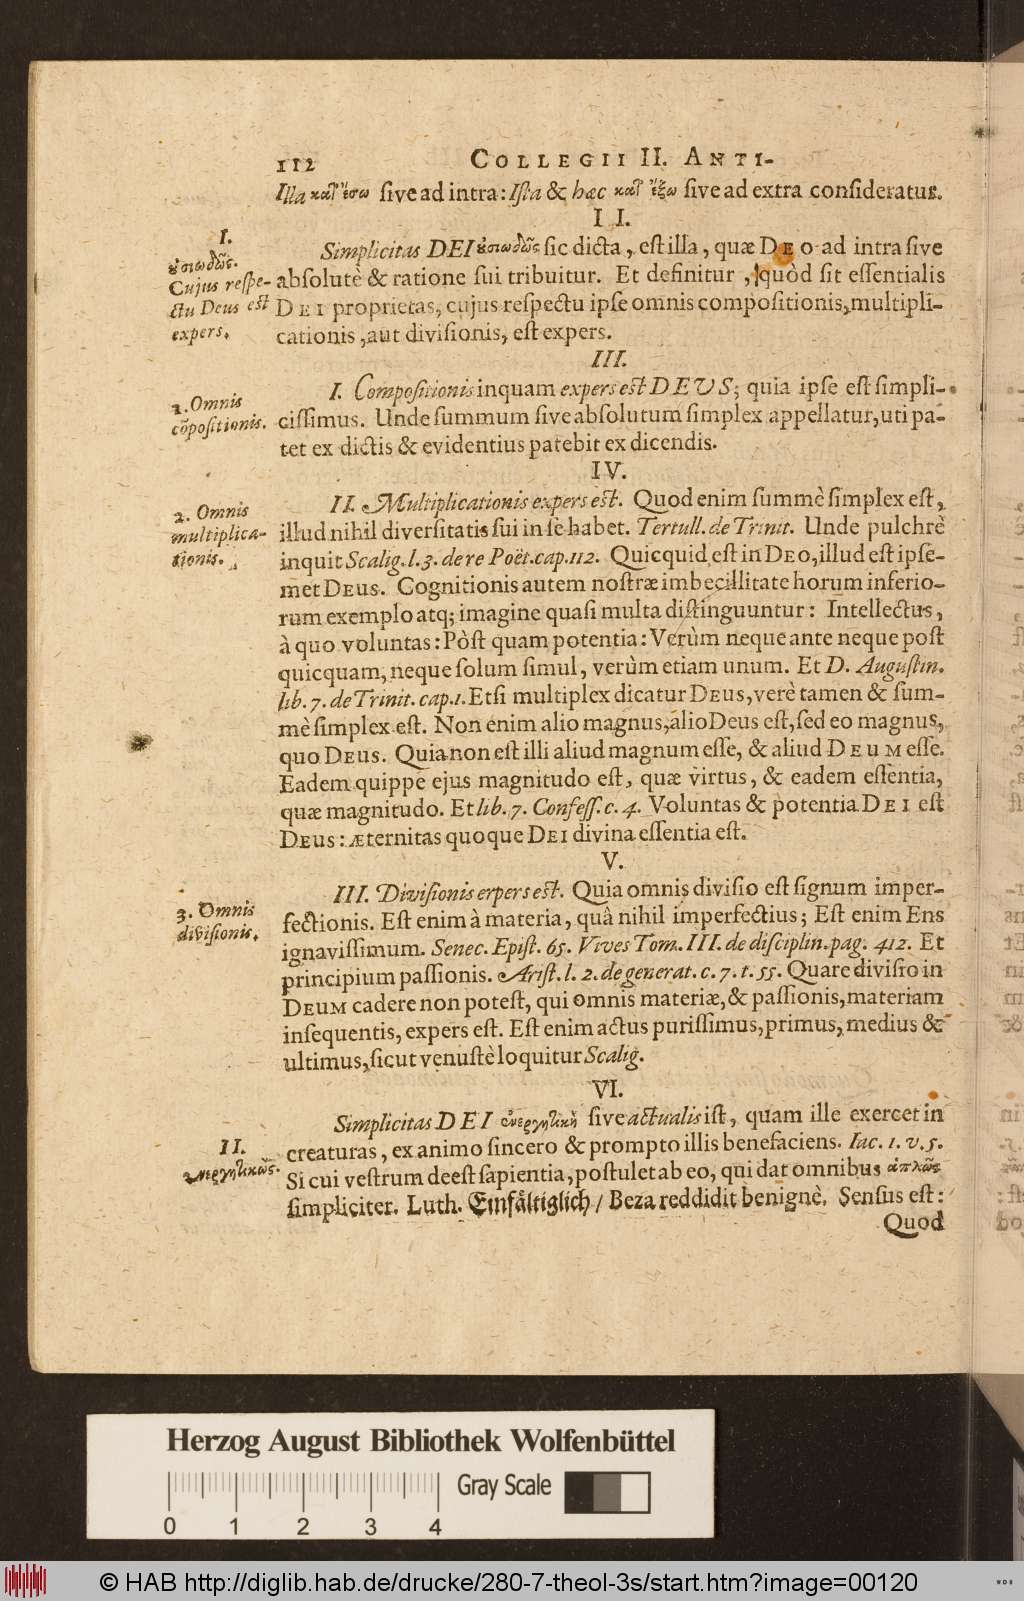 112 COLLEGII II. ANTI-
Illa κατ᾽ ἔσω ſive ad intra: Iſta & hæc κατ᾽ ἔξω ſive ad extra conſideratur.
II.
I.
Simplicitas DEI ȣ̓σιωδῶς ſic dicta, eſt illa, quæ DEO ad intra ſive
ȣ̓σιωδῶς.
abſolutè & ratione ſui tribuitur. Et definitur, quòd ſit eſſentialis
Cujus reſpe-
DEI proprietas, cujus reſpectu ipſe omnis compoſitionis, multipli-
ctu Deus eſt
cationis, aut diviſionis, eſt expers.
expers.
III.
I. Compoſitionis inquam expers eſt DEUS; quia ipſe eſt ſimpli-
1. Omnis
ciſſimus. Unde ſummum ſive abſolutum ſimplex appellatur, uti pa-
cōpoſitionis.
tet ex dictis & evidentius patebit ex dicendis.
IV.
II. Multiplicationis expers eſt. Quod enim ſummè ſimplex eſt,
2. Omnis
illud nihil diverſitatis ſui in ſe habet. Tertull. de Trinit. Unde pulchrè
multiplica-
inquit Scalig. l. 3. de re Poët. cap. 112. Quicquid eſt in DEO, illud eſt ipſe-
tionis.
met DEUS. Cognitionis autem noſtræ imbecillitate horum inferio-
rum exemplo atq; imagine quaſi multa diſtinguuntur: Intellectus,
à quo voluntas: Pòſt quam potentia: Verùm neque ante neque poſt
quicquam, neque ſolum ſimul, verùm etiam unum. Et D. Auguſtin.
lib. 7. de Trinit. cap. 1. Etſi multiplex dicatur DEUS, verè tamen & ſum-
mè ſimplex eſt. Non enim alio magnus, alio Deus eſt, ſed eo magnus,
quo DEUS. Quia non eſt illi aliud magnum eſſe, & aliud DEUM eſſe.
Eadem quippe ejus magnitudo eſt, quæ virtus, & eadem eſſentia,
quæ magnitudo. Et lib. 7. Confeſſ. c. 4. Voluntas & potentia DEI eſt
DEUS: æternitas quoque DEI divina eſſentia eſt.
V.
III. Diviſionis erpers eſt. Quia omnis diviſio eſt ſignum imper-
3. Omnis
fectionis. Eſt enim à materia, quâ nihil imperfectius; Eſt enim Ens
diviſionis.
ignaviſſimum. Senec. Epiſt. 65. Vives Tom. III. de diſciplin. pag. 412. Et
principium paſſionis. Ariſt. l. 2. de generat. c. 7. t. 55. Quare diviſio in
DEUM cadere non poteſt, qui omnis materiæ, & paſſionis, materiam
inſequentis, expers eſt. Eſt enim actus puriſſimus, primus, medius &
ultimus, ſicut venuſtè loquitur Scalig.
VI.
Simplicitas DEI ἐνεργητικὴ ſive actualis iſt, quam ille exercet in
II.
creaturas, ex animo ſincero & prompto illis benefaciens. Iac. 1. v. 5.
ἐνεργητικῶς.
Si cui veſtrum deeſt ſapientia, poſtulet ab eo, qui dat omnibus ἁπλῶς
ſimpliciter. Luth. Einfältiglich / Beza reddidit benignè. Senſus eſt:
Quod
Herzog August Bibliothek Wolfenbüttel
Gray Scale
0 1 2 3 4
© HAB http://diglib.hab.de/drucke/280-7-theol-3s/start.htm?image=00120